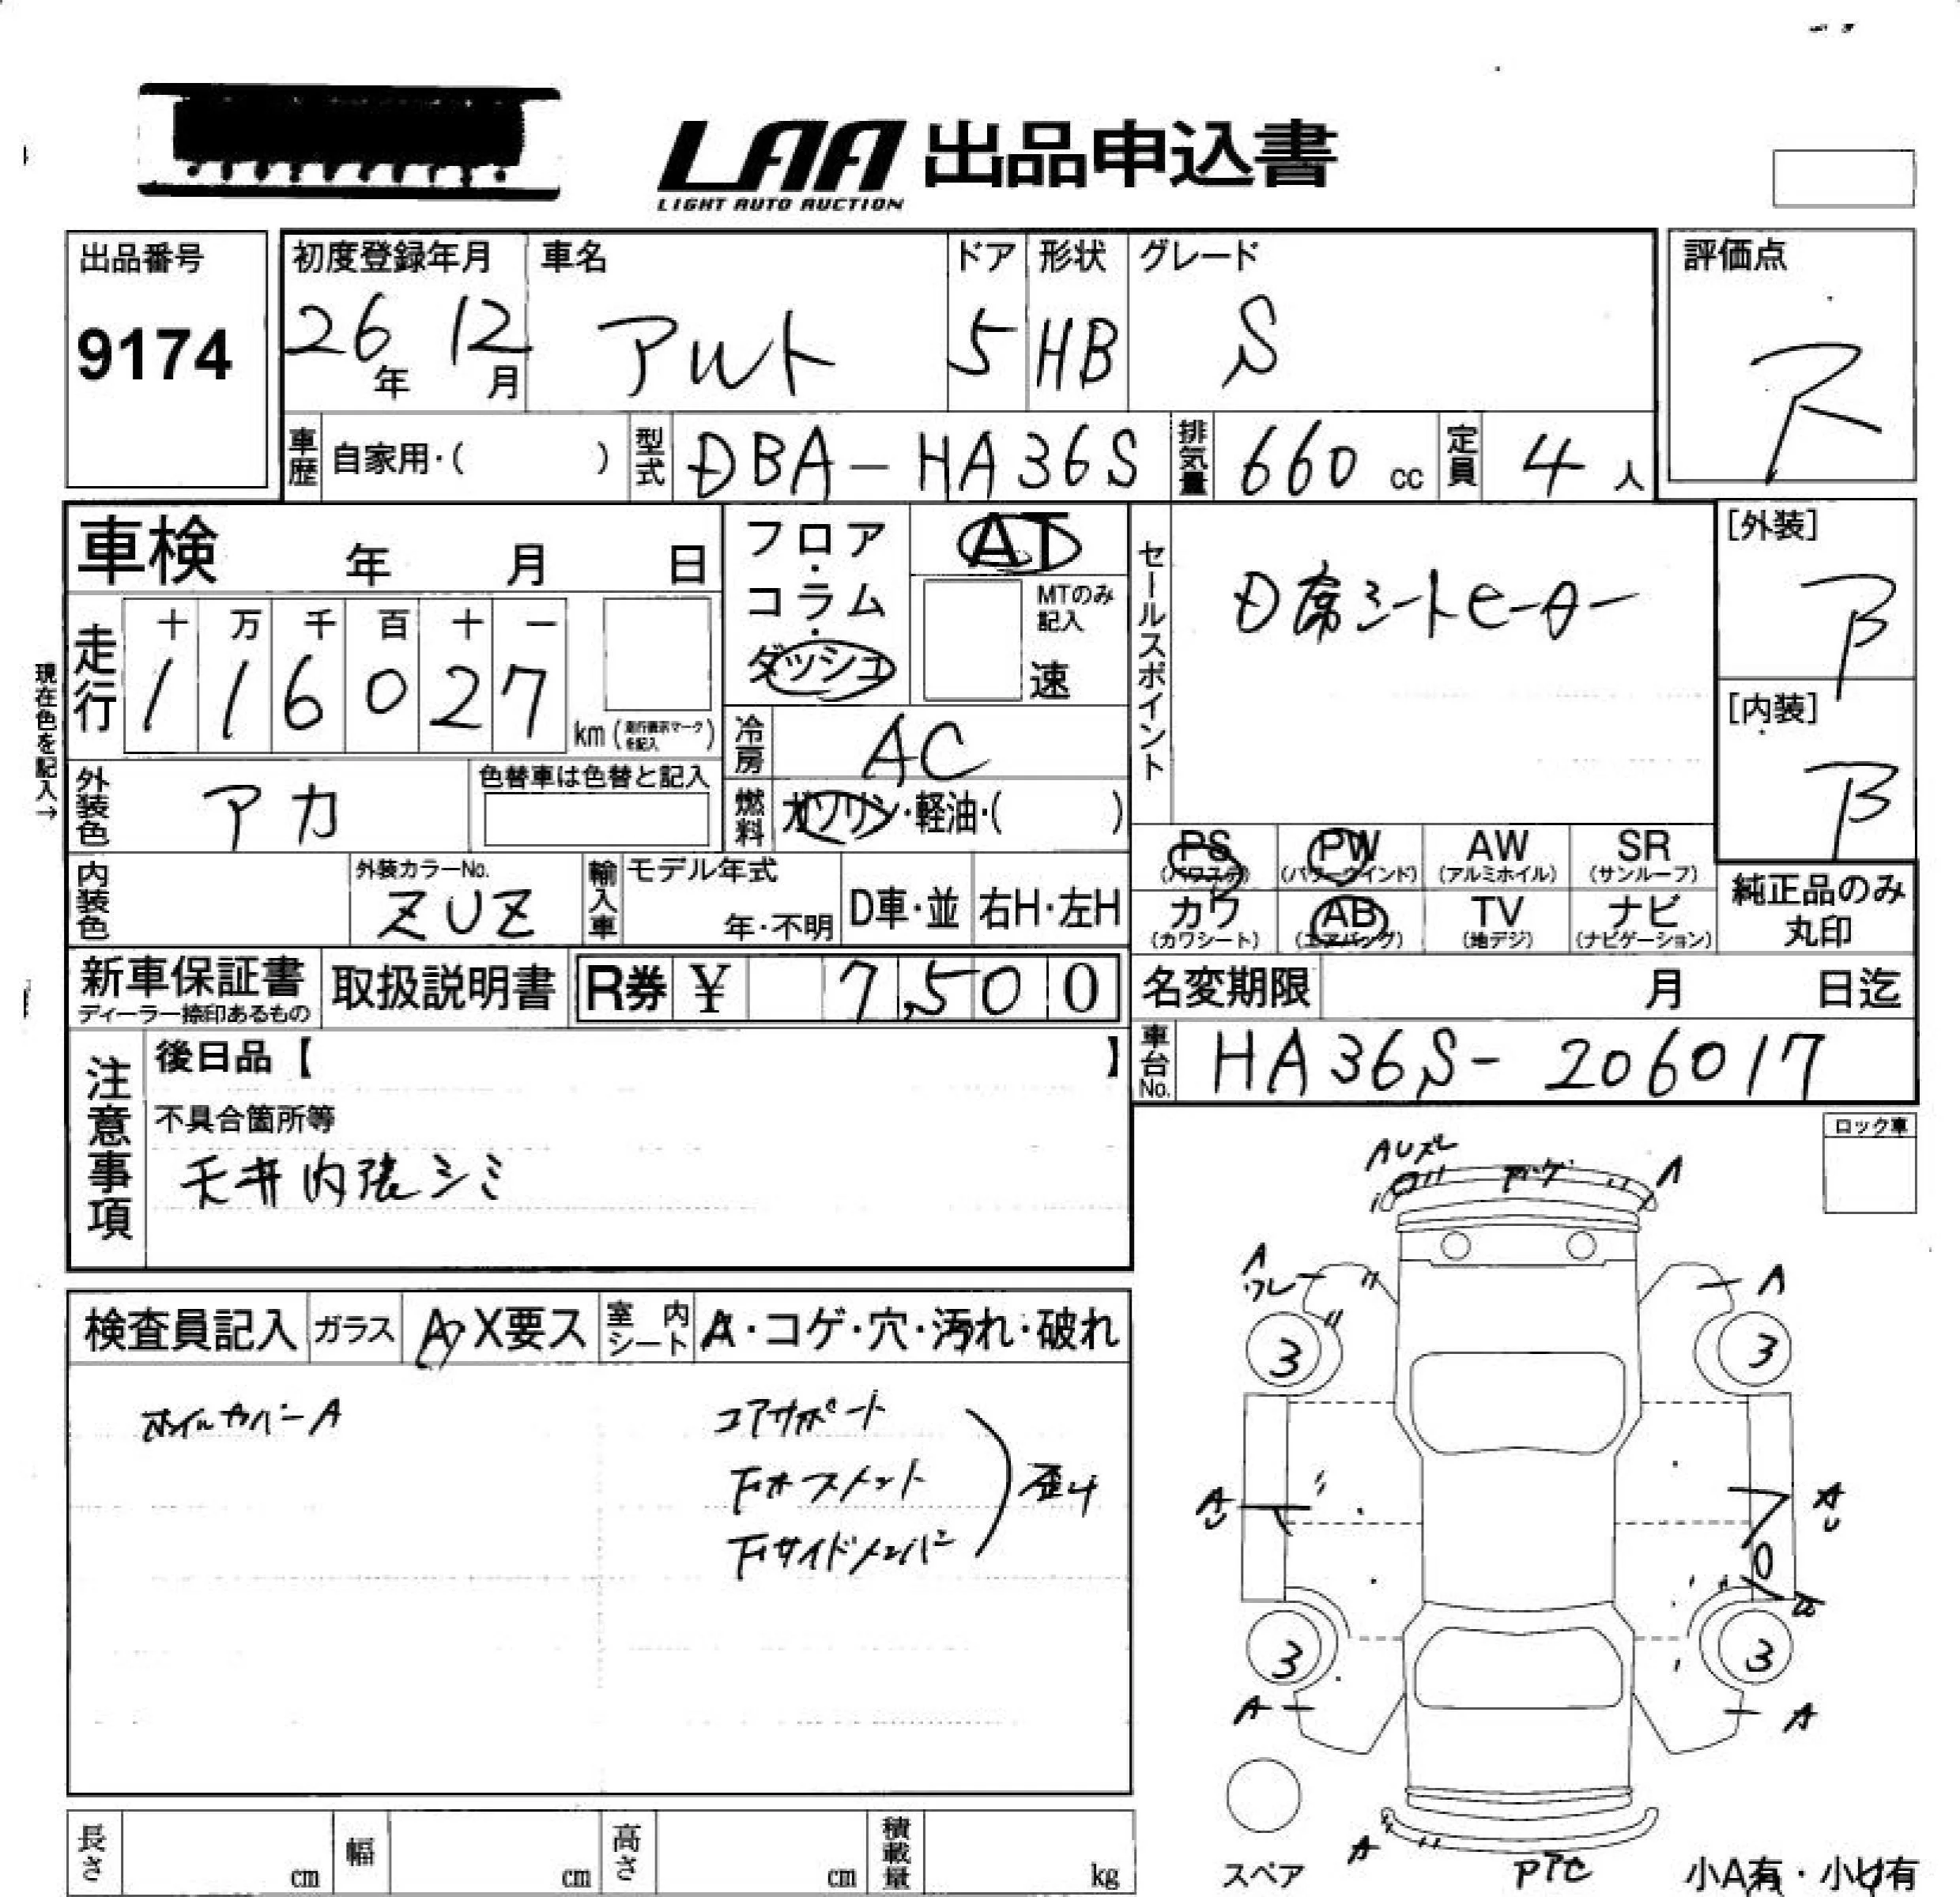 LAA 出品申込書
LIGHT AUTO AUCTION
出品番号
9174
初度登録年月 車名 ドア 形状 グレード
26年 12月 アルト 5 HB S
評価点
R
車歴 自家用・( ) 型式 DBA-HA36S 排気量 660 cc 定員 4 人
車検 年 月 日
フロア・コラム・ダッシュ
AT
MTのみ記入
速
セールスポイント
D席シートヒーター
[外装]
B
[内装]
B
現在色を記入→
走行 十 万 千 百 十 一
1 1 6 0 2 7 km (走行表示マークを記入)
冷房 AC
外装色 アカ 色替車は色替と記入
燃料 ガソリン・軽油・( )
内装色 外装カラーNo. ZUZ
輸入車 モデル年式 年・不明 D車・並 右H・左H
PS (パワステ) PW (パワーウインド) AW (アルミホイル) SR (サンルーフ)
カワ (カワシート) AB (エアバッグ) TV (地デジ) ナビ (ナビゲーション)
純正品のみ丸印
新車保証書 ディーラー捺印あるもの 取扱説明書 R券 ¥ 7,500
名変期限 月 日迄
車台No. HA36S-206017
注意事項
後日品【 】
不具合箇所等
天井内張シミ
ロック車
検査員記入 ガラス A X要ス 室内シート A・コゲ・穴・汚れ・破れ
ホイルカバーA
コアサポート
歪み
A
A
ワレ
A
3
3
A
A
3
3
A
A
A
スペア
小A有・小U有
長さ cm 幅 cm 高さ cm 積載量 kg